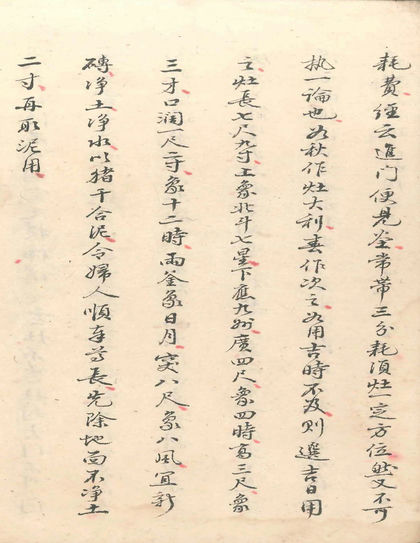 耗費經云進门便見釡常帶三分耗須灶一定方位然又不可
执一論也为秋作灶大利春作次之为用吉時不及则選吉日用
之灶長七尺九寸上象北斗七星下應九州廣四尺象四時高三尺象
三才口濶一尺二寸象十二時兩釜象日月突八尺象八風宜新
磚净土净水以猪干合泥令婦人順奉尊長先除地面不净土
二寸再取泥用